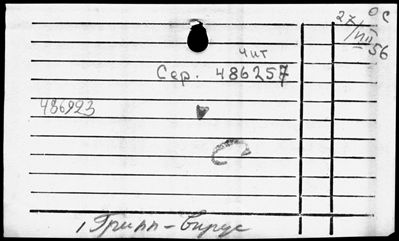 ОС
27/VII 56
чит
Сер. 486257
486923
Грипп - вирус